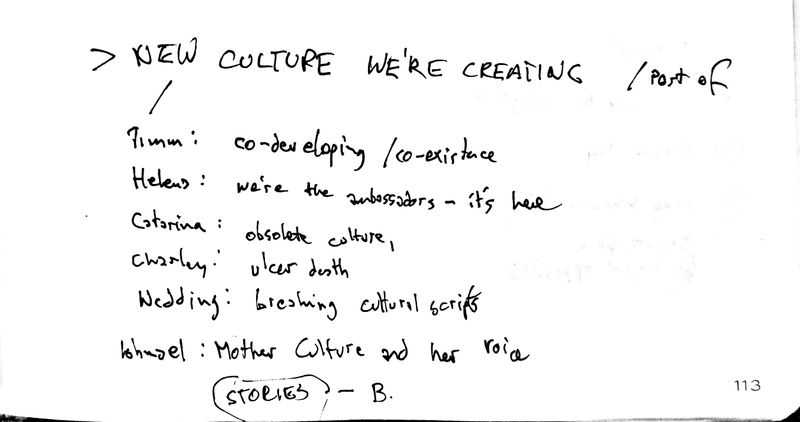 > NEW CULTURE WE'RE CREATING / part of
/
Timm: co-developing / co-existace
Helena: we're the ambassadors - it's here
Catarina: obsolete culture,
Charley: ulcer death
Wedding: breaking cultural scripts
Ishmael: Mother Culture and her voice
STORIES - B.
113